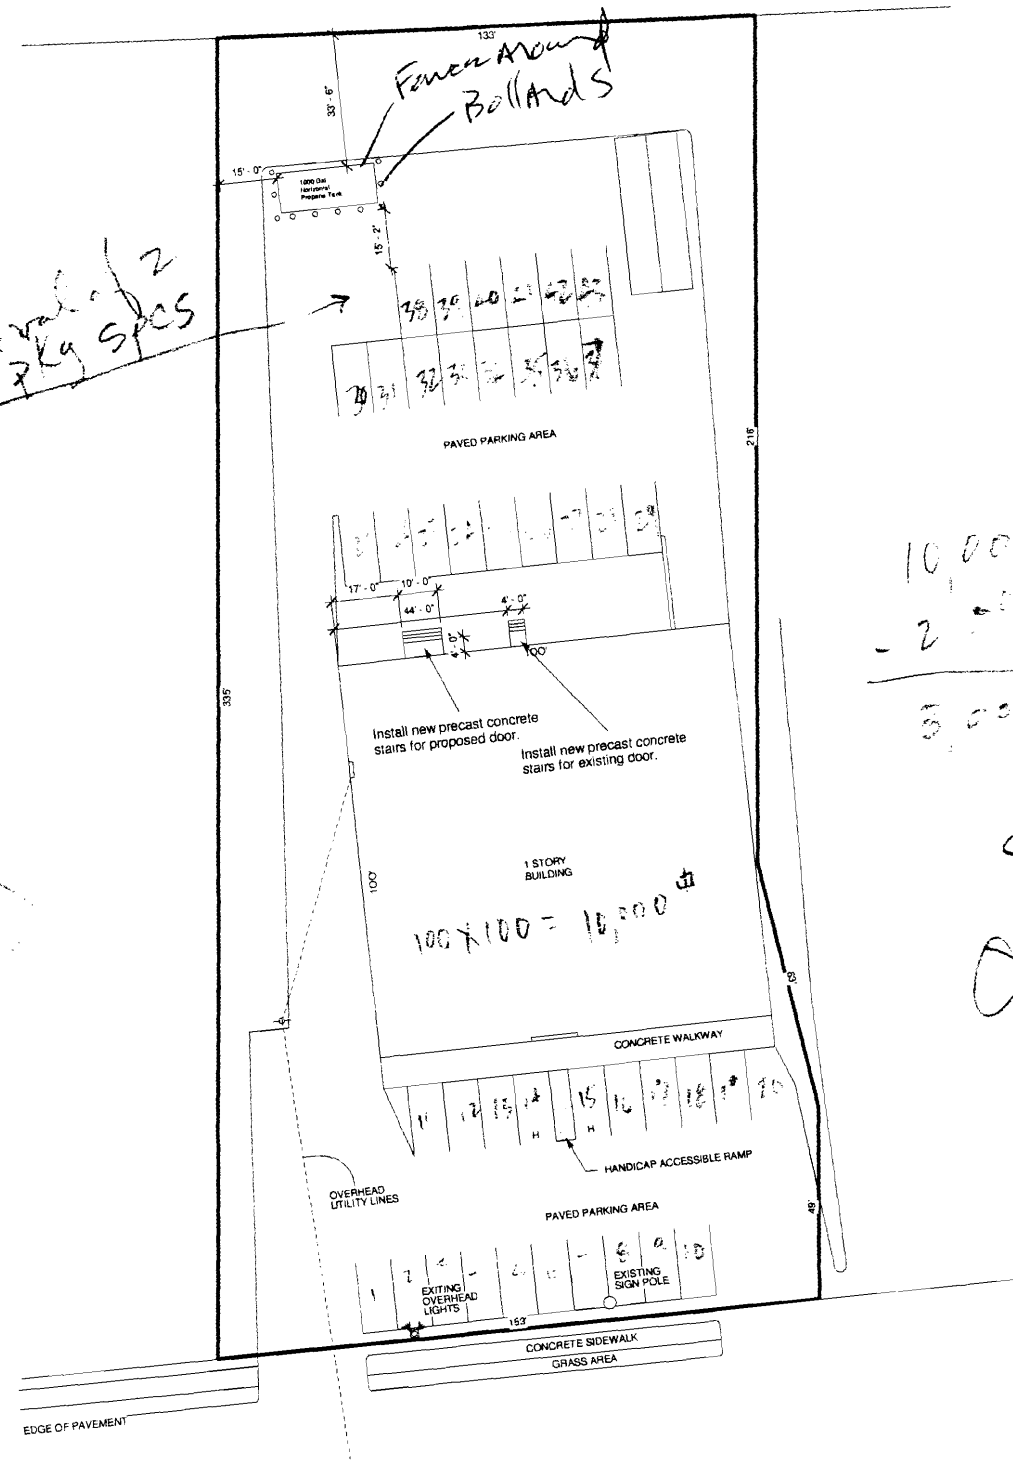 133'
Around
Bollards
33' - 6"
15' - 0"
1000 Gal
Horizontal
Propane Tank
15' - 2"
2
SPCS
38 39 40 41 42 43
31 32 33 35 36
PAVED PARKING AREA
216'
29
17' - 0" 10' - 0"
44' - 0" 4' - 0"
4' - 0"
100'
335'
Install new precast concrete
stairs for proposed door.
Install new precast concrete
stairs for existing door.
1 STORY
BUILDING
100'
100 X 100 = 10,000
63'
CONCRETE WALKWAY
11 12 13 14 15 16 17 18 19 20
H H
HANDICAP ACCESSIBLE RAMP
OVERHEAD
UTILITY LINES
PAVED PARKING AREA
49'
1 2 8 9 10
EXITING
OVERHEAD
LIGHTS
EXISTING
SIGN POLE
153'
CONCRETE SIDEWALK
GRASS AREA
EDGE OF PAVEMENT